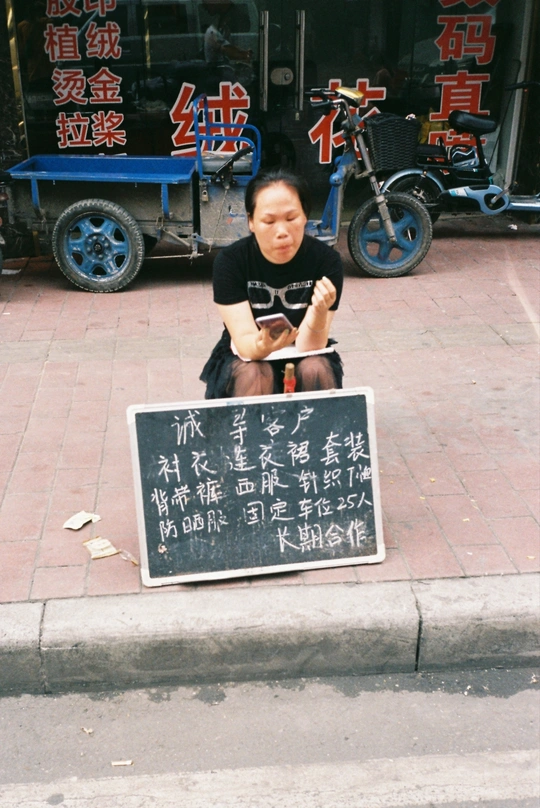 服印
植绒
烫金
拉浆
绒
花
数码
直
诚寻客户
衬衣 连衣裙 套装
背带裤 西服 针织T恤
防晒服 固定车位25人
长期合作